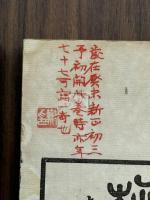 歳在癸未新正初三
予初開此卷時亦年
七十七可謂一奇也